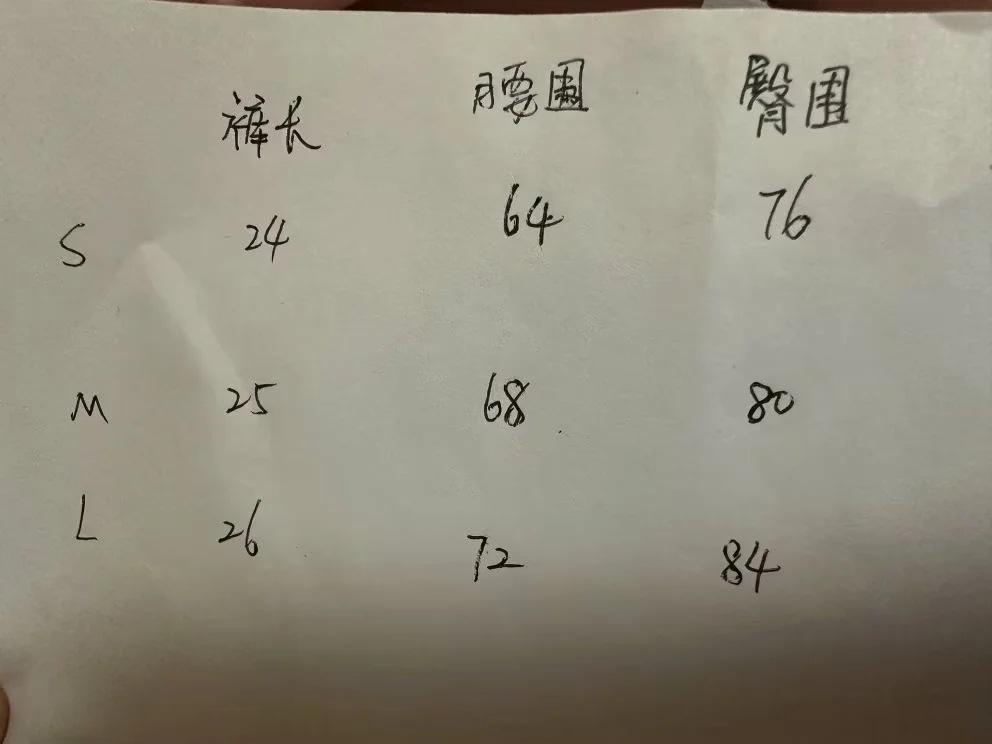 裤长 腰围 臀围
S 24 64 76
M 25 68 80
L 26 72 84